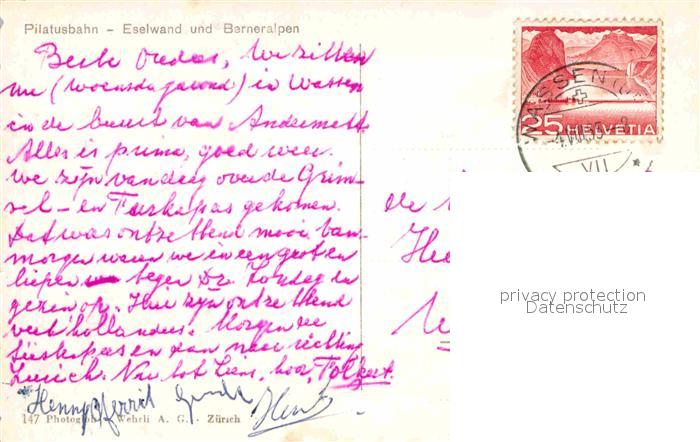 Pilatusbahn - Eselwand und Berneralpen
Beste Ouders, We zitten
nu (woensdagavond) in Wassen
in de buurt van Andermatt.
Alles is prima, goed weer.
We zijn vandaag over de Grim-
sel- en Furkapas gekomen.
Dat was ontzettend mooi. Van-
morgen waren we in een grot en
liepen tegen Dr. en
gezin op. Hier zijn ontzettend
veel hollanders. Morgen de
en dan naar richting
Zurich. Nu tot ziens, hoor, Folkert.
Henny
147 Photogl Wehrli A. G. - Zürich
25 HELVETIA
WASSEN
VII
de
privacy protection
Datenschutz